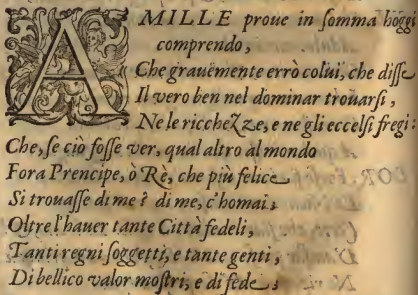 A MILLE proue in ſomma hoggi
comprendo,
Che grauemente errò colui, che diſſe
Il vero ben nel dominar trouarſi,
Ne le ricchezze, e ne gli eccelſi fregi:
Che, ſe ciò foſſe ver, qual altro al mondo
Fora Prencipe, ò Rè, che più felice
Si trouaſſe di me? di me, c'homai,
Oltre l'hauer tante Città fedeli,
Tanti regni ſoggetti, e tante genti,
Di bellico valor moſtri, e di fede;